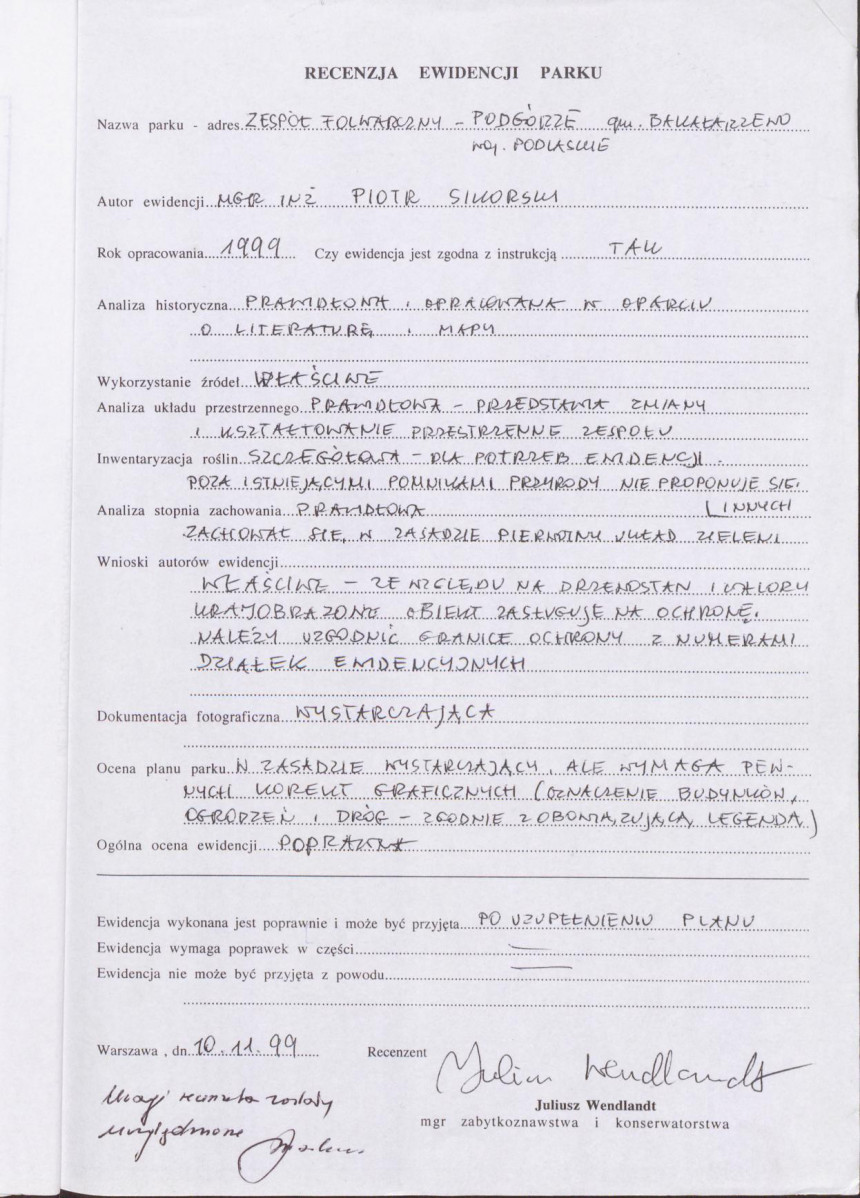 RECENZJA EWIDENCJI PARKU
Nazwa parku - adres ZESPÓŁ FOLWARCZNY - PODGÓRZE gm. BAKAŁARZEWO
woj. PODLASKIE
Autor ewidencji MGR INŻ PIOTR SIKORSKI
Rok opracowania 1999 Czy ewidencja jest zgodna z instrukcją TAK
Analiza historyczna PRAWIDŁOWA I OPRACOWANA W OPARCIU
O LITERATURĘ I MAPY
Wykorzystanie źródeł WŁAŚCIWE
Analiza układu przestrzennego PRAWIDŁOWA - PRZEDSTAWIA ZMIANY
I KSZTAŁTOWANIE PRZESTRZENNE ZESPOŁU
Inwentaryzacja roślin SZCZEGÓŁOWA - DLA POTRZEB EWIDENCJI.
POZA ISTNIEJĄCYMI POMNIKAMI PRZYRODY NIE PROPONUJE SIĘ
Analiza stopnia zachowania PRAWIDŁOWA INNYCH
ZACHOWAŁ SIĘ W ZASADZIE PIERWOTNY UKŁAD ZIELENI
Wnioski autorów ewidencji
WŁAŚCIWE - ZE WZGLĘDU NA DRZEWOSTAN I WALORY
KRAJOBRAZOWE OBIEKT ZASŁUGUJE NA OCHRONĘ.
NALEŻY UZGODNIĆ GRANICE OCHRONY Z NUMERAMI
DZIAŁEK EWIDENCYJNYCH
Dokumentacja fotograficzna WYSTARCZAJĄCA
Ocena planu parku W ZASADZIE WYSTARCZAJĄCY, ALE WYMAGA PEW-
NYCH KOREKT GRAFICZNYCH (OZNACZENIE BUDYNKÓW,
OGRODZEŃ I DRÓG - ZGODNIE Z OBOWIĄZUJĄCĄ LEGENDĄ)
Ogólna ocena ewidencji POPRAWNA
Ewidencja wykonana jest poprawnie i może być przyjęta PO UZUPEŁNIENIU PLANU
Ewidencja wymaga poprawek w części —
Ewidencja nie może być przyjęta z powodu —
Warszawa , dn. 10.11.99 Recenzent Juliusz Wendlandt
Juliusz Wendlandt
mgr zabytkoznawstwa i konserwatorstwa
Uwagi zostały
uwzględnione